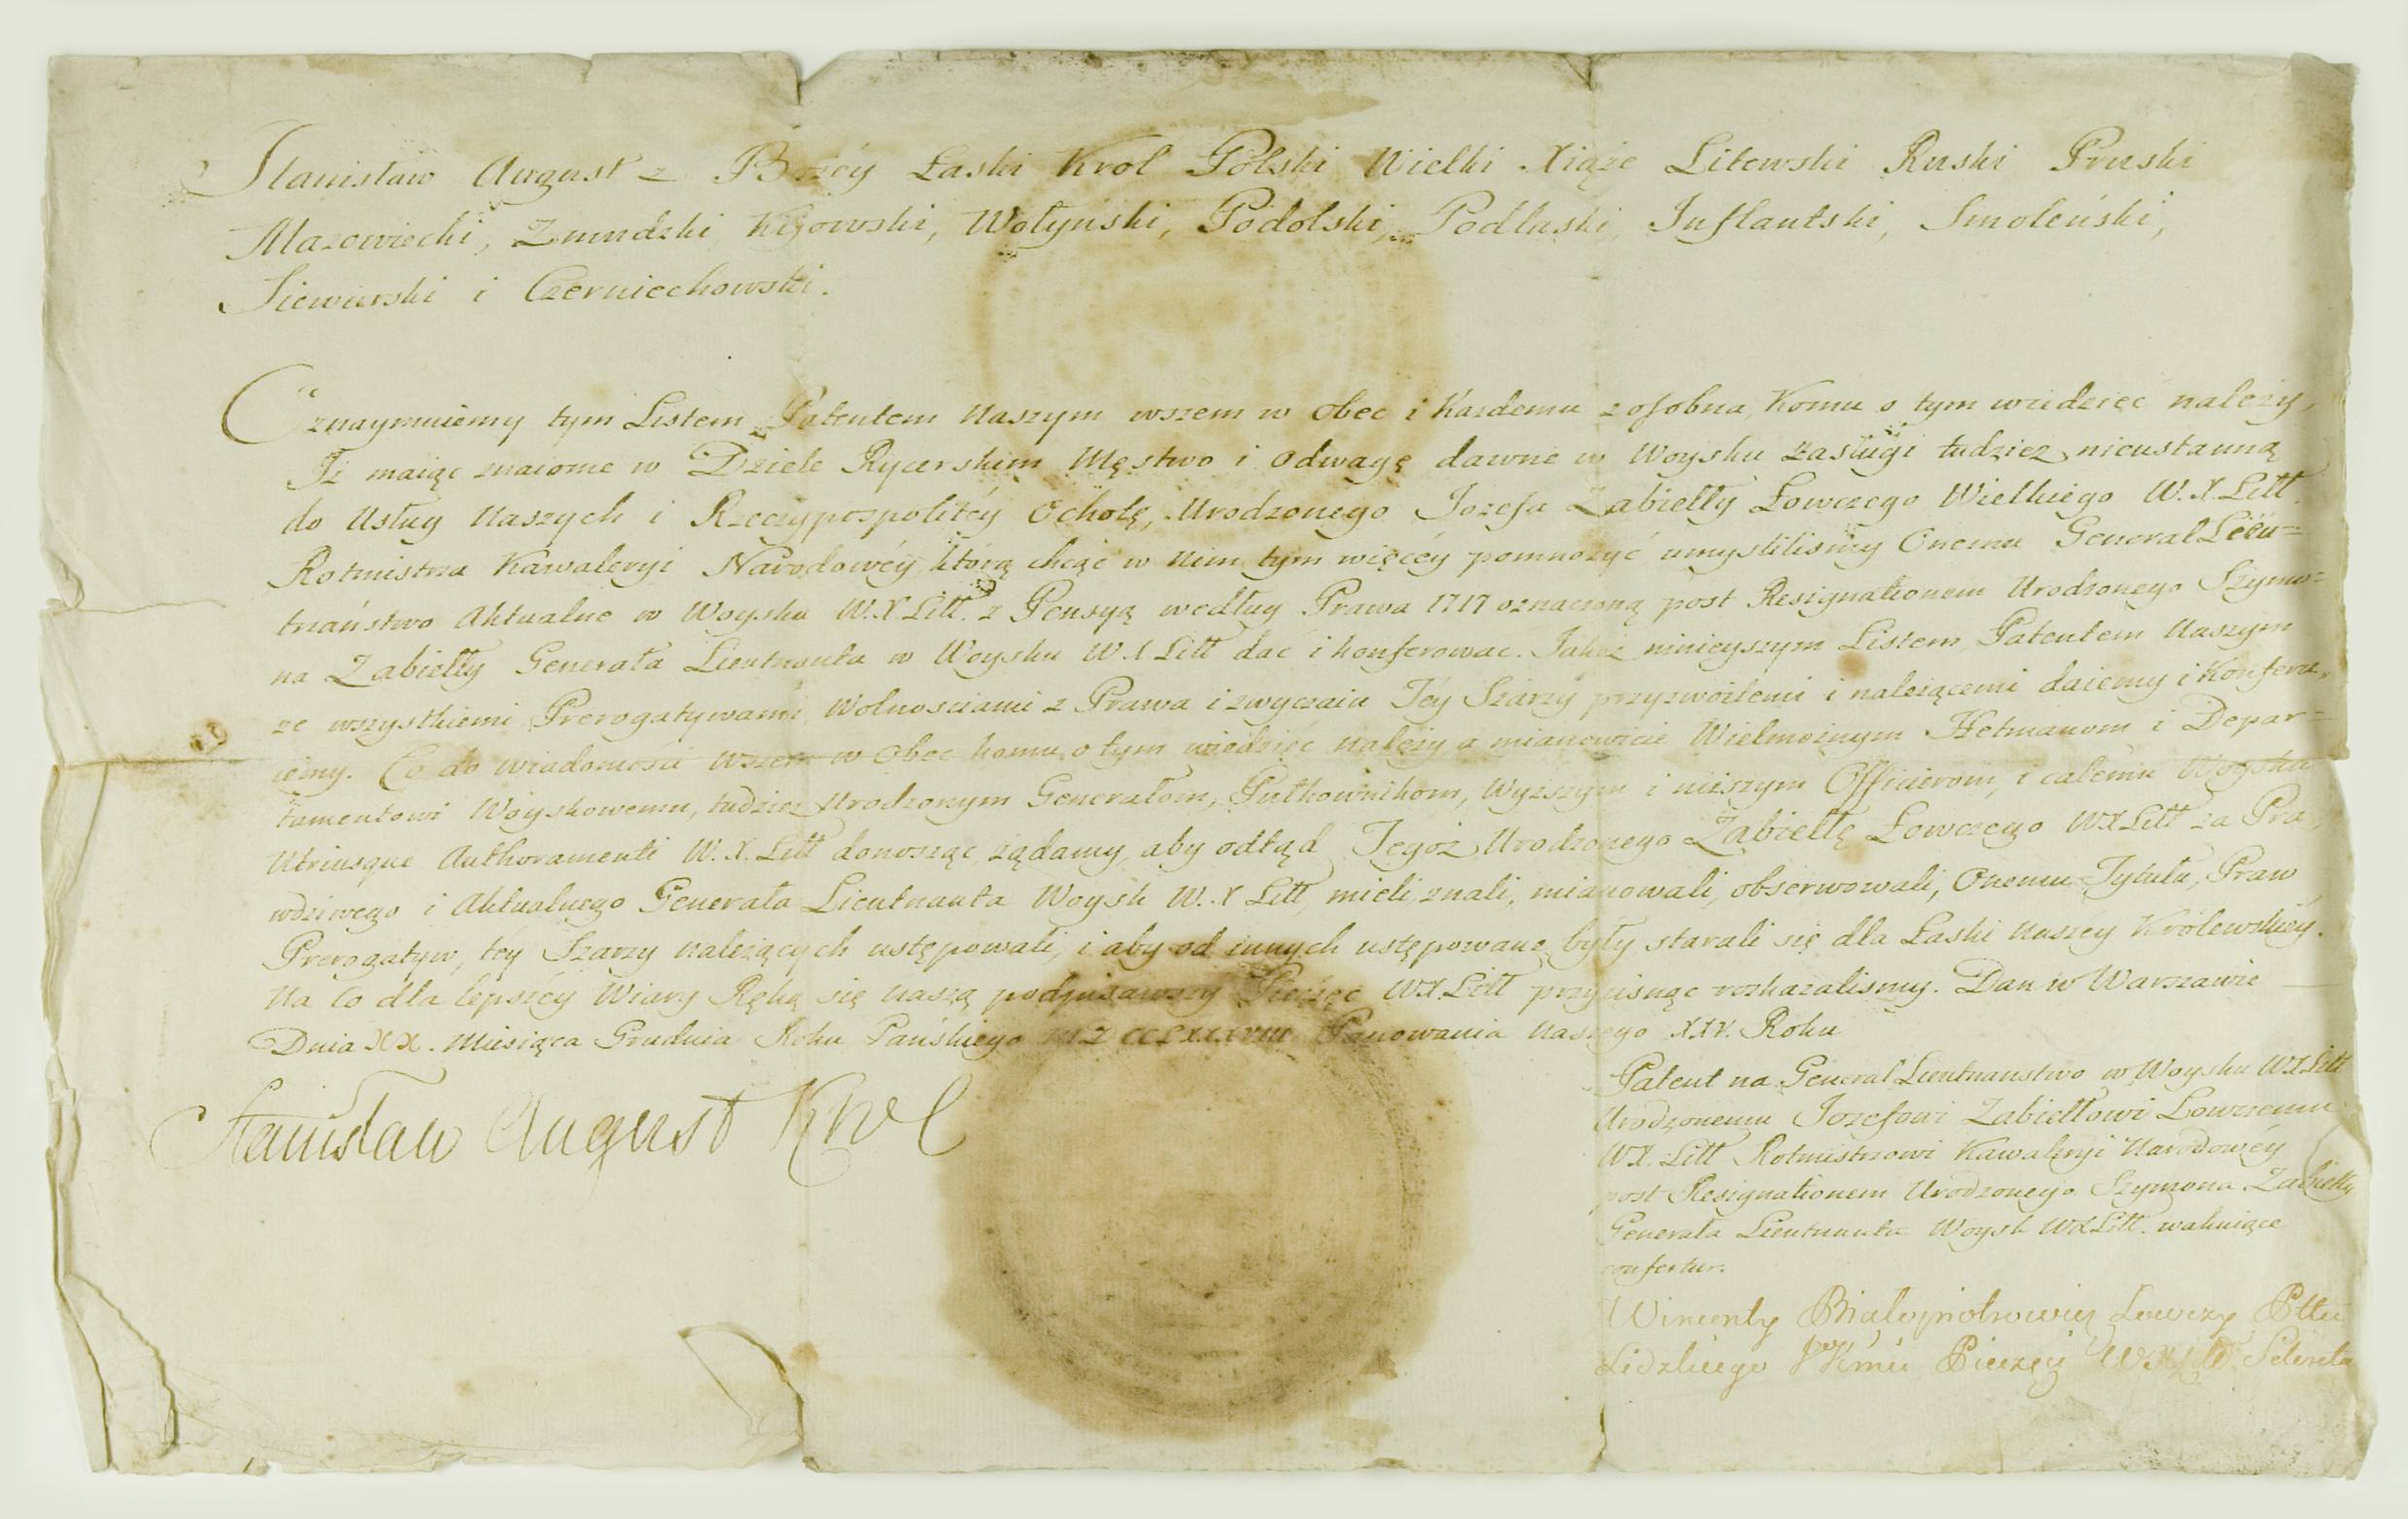 Stanisław August z Bożéy Łaski Krol Polski Wielki Xiąże Litewski Ruski Pruski
Mazowiecki, Zmudzki, Kijowski, Wołyński, Podolski, Podlaski, Inflantski, Smoleński,
Siewierski i Czerniechowski.
Oznaymuiemy tym Listem Patentem Naszym wszem w obec i Każdemu z osobna, Komu o tym wiedzieć należy,
Iż maiąc znaiome w Dziele Rycerskim Męstwo i odwagę dawne w Woysku zasługi tudzież nieustanną
do Usług Naszych i Rzeczypospolitéy Ochotę, Urodzonego Jozefa Zabiełły Łowczego Wielkiego W.X.Litt.
Rotmistrza Kawaleryi Narodowéy, którą chcąc w Nim tym więcéy pomnożyć umyśliliśmy Onemu General Lieu=
tnaństwo Aktualne w Woysku W.X.Litt. z Pensyą według Prawa 1717 oznaczoną post Resignationem Urodzonego Szymo=
na Zabiełły Generała Lieutnanta w Woysku W.X Litt dać i konferować. Jakoż ninieyszym Listem Patentem Naszym
ze wszystkiemi Prerogatywami, Wolnościami z Prawa i zwyczaiu Téy Szarży przyzwoitemi i należącemi daiemy i Konferu,
iemy. Co do wiadomości wszem w Obec komu o tym wiedzieć należy, a mianowicie Wielmożnym Hetmanom i Depar=
tamentowi Woyskowemu, tudzież Urodzonym Generałom, Pułkownikom, Wyższym i niższym Officierom, i całemu Woysku
Utriusque Authoramenti W.X.Litt donosząc żądamy, aby odtąd Tegoż Urodzonego Zabiełłę Łowczego WXLitt za Pra,
wdziwego i Aktualnego Generała Lieutnanta Woysk W.X Litt, mieli, znali, mianowali, obserwowali, Onemu Tytułu, Praw
Prerogatyw, téy Szarży należących ustępowali, i aby od innych ustępowane były starali się dla Łaski Naszéy Królewskiéy.
Na Co dla lepszéy Wiary Ręką się naszą podpisawszy Pieczęć WX.Litt przycisnąć rozkazaliśmy. Dan w Warszawie
Dnia XX. Miesiąca Grudnia Roku Pańskiego MDCCLXXXVIII Panowania Naszego XXV. Roku
Stanisław August Krol
Patent na General Lieutnanstwo w Woysku WXLitt
Urodzonemu Jozefowi Zabiełłowi Łowczemu
WX. Litt Rotmistrzowi Kawaleryi Narodowéy
post Resignationem Urodzonego Szymona Zabiełły
Generała Lieutnanta Woysk WXLitt. wakuiące
confertur.
Wincenty Białopiotrowicz Łowczy Pttu
Lidzkiego Pieczęci WXLitt Sekreta